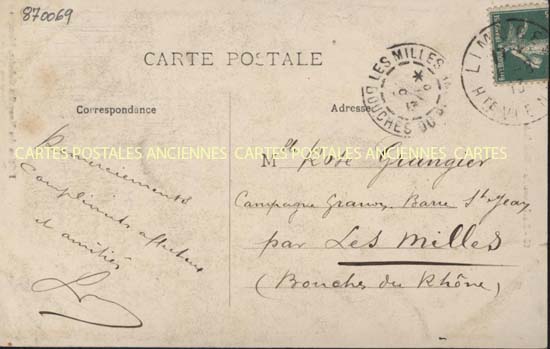 870069
CARTE POSTALE
Correspondance
Adresse
LES MILLES
BOUCHES DU
LIM
HTE VIEN
CARTES POSTALES ANCIENNES CARTES POSTALES ANCIENNES CARTES POSTALES ANCIENNES
Remerciements
compliments affectueux
et amitiés
Melle Rose Grangier
Campagne Barre St Jean
par Les Milles
(Bouches du Rhône)